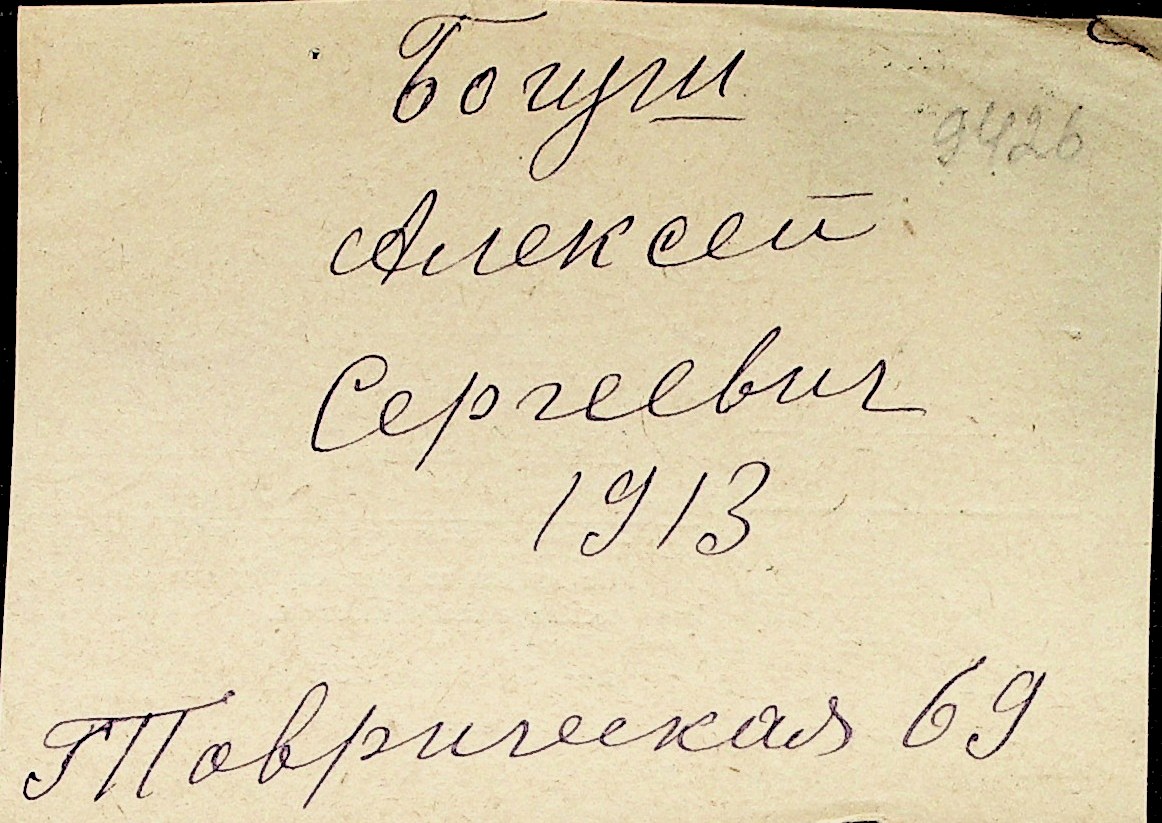 Богуш
9426
Алексей
Сергеевич
1913
Товрическая 69